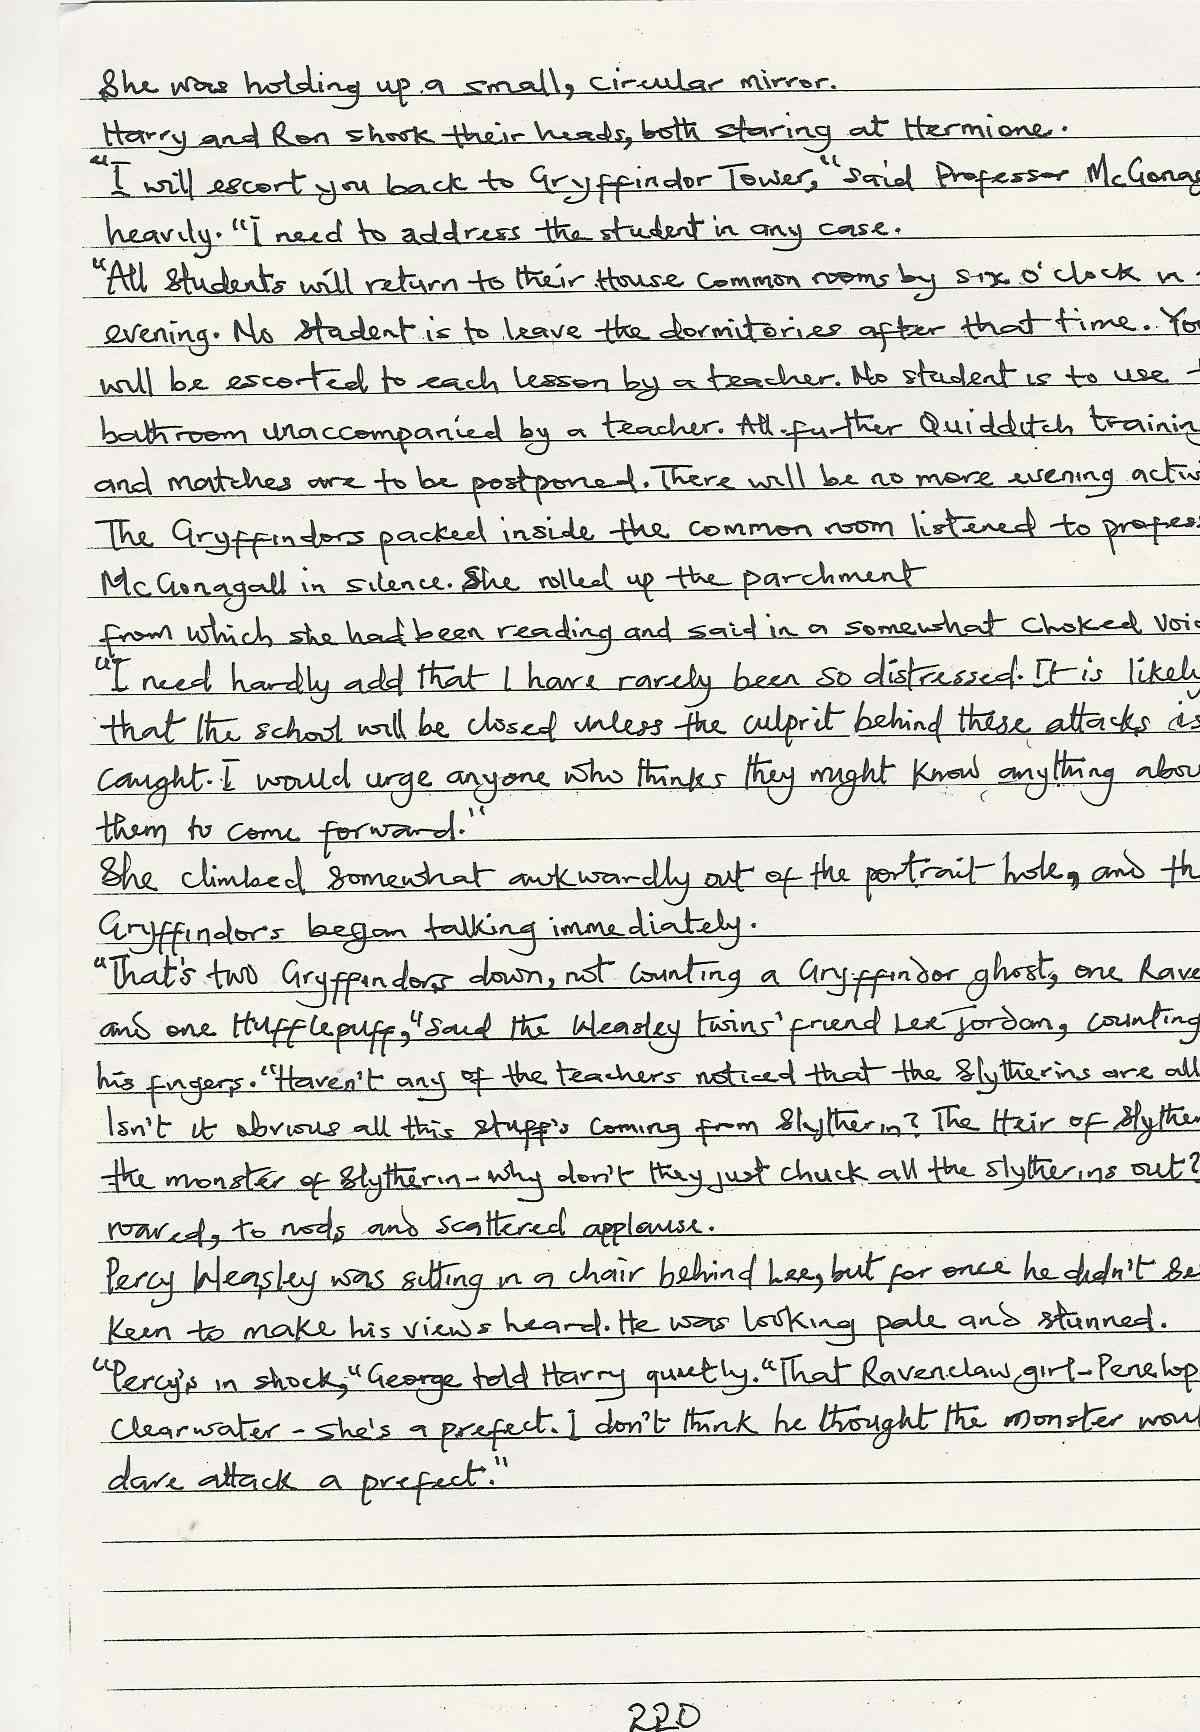 She was holding up a small, circular mirror.
Harry and Ron shook their heads, both staring at Hermione.
"I will escort you back to Gryffindor Tower," said Professor McGonag
heavily. "I need to address the student in any case.
"All students will return to their House common rooms by six o'clock n
evening. No student is to leave the dormitories after that time. You
will be escorted to each lesson by a teacher. No student is to use t
bathroom unaccompanied by a teacher. All further Quidditch training
and matches are to be postponed. There will be no more evening activi
The Gryffindors packed inside the common room listened to profess
McGonagall in silence. She rolled up the parchment
from which she had been reading and said in a somewhat choked voic
"I need hardly add that I have rarely been so distressed. It is likely
that the school will be closed unless the culprit behind these attacks is
caught. I would urge anyone who thinks they might know anything abou
them to come forward."
She climbed somewhat awkwardly out of the portrait hole, and th
Gryffindors began talking immediately.
"That's two Gryffindors down, not counting a Gryffindor ghost, one Rave
and one Hufflepuff," said the Weasley twins' friend Lee Jordan, counting
his fingers. "Haven't any of the teachers noticed that the Slytherins are all
Isn't it obvious all this stuff's coming from Slytherin? The Heir of Slyther
the monster of Slytherin - why don't they just chuck all the slytherins out?
roared, to nods and scattered applause.
Percy Weasley was sitting in a chair behind Lee, but for once he didn't se
keen to make his views heard. He was looking pale and stunned.
"Percy's in shock," George told Harry quietly. "That Ravenclaw girl - Penelop
Clearwater - she's a prefect. I don't think he thought the monster woul
dare attack a prefect."
220